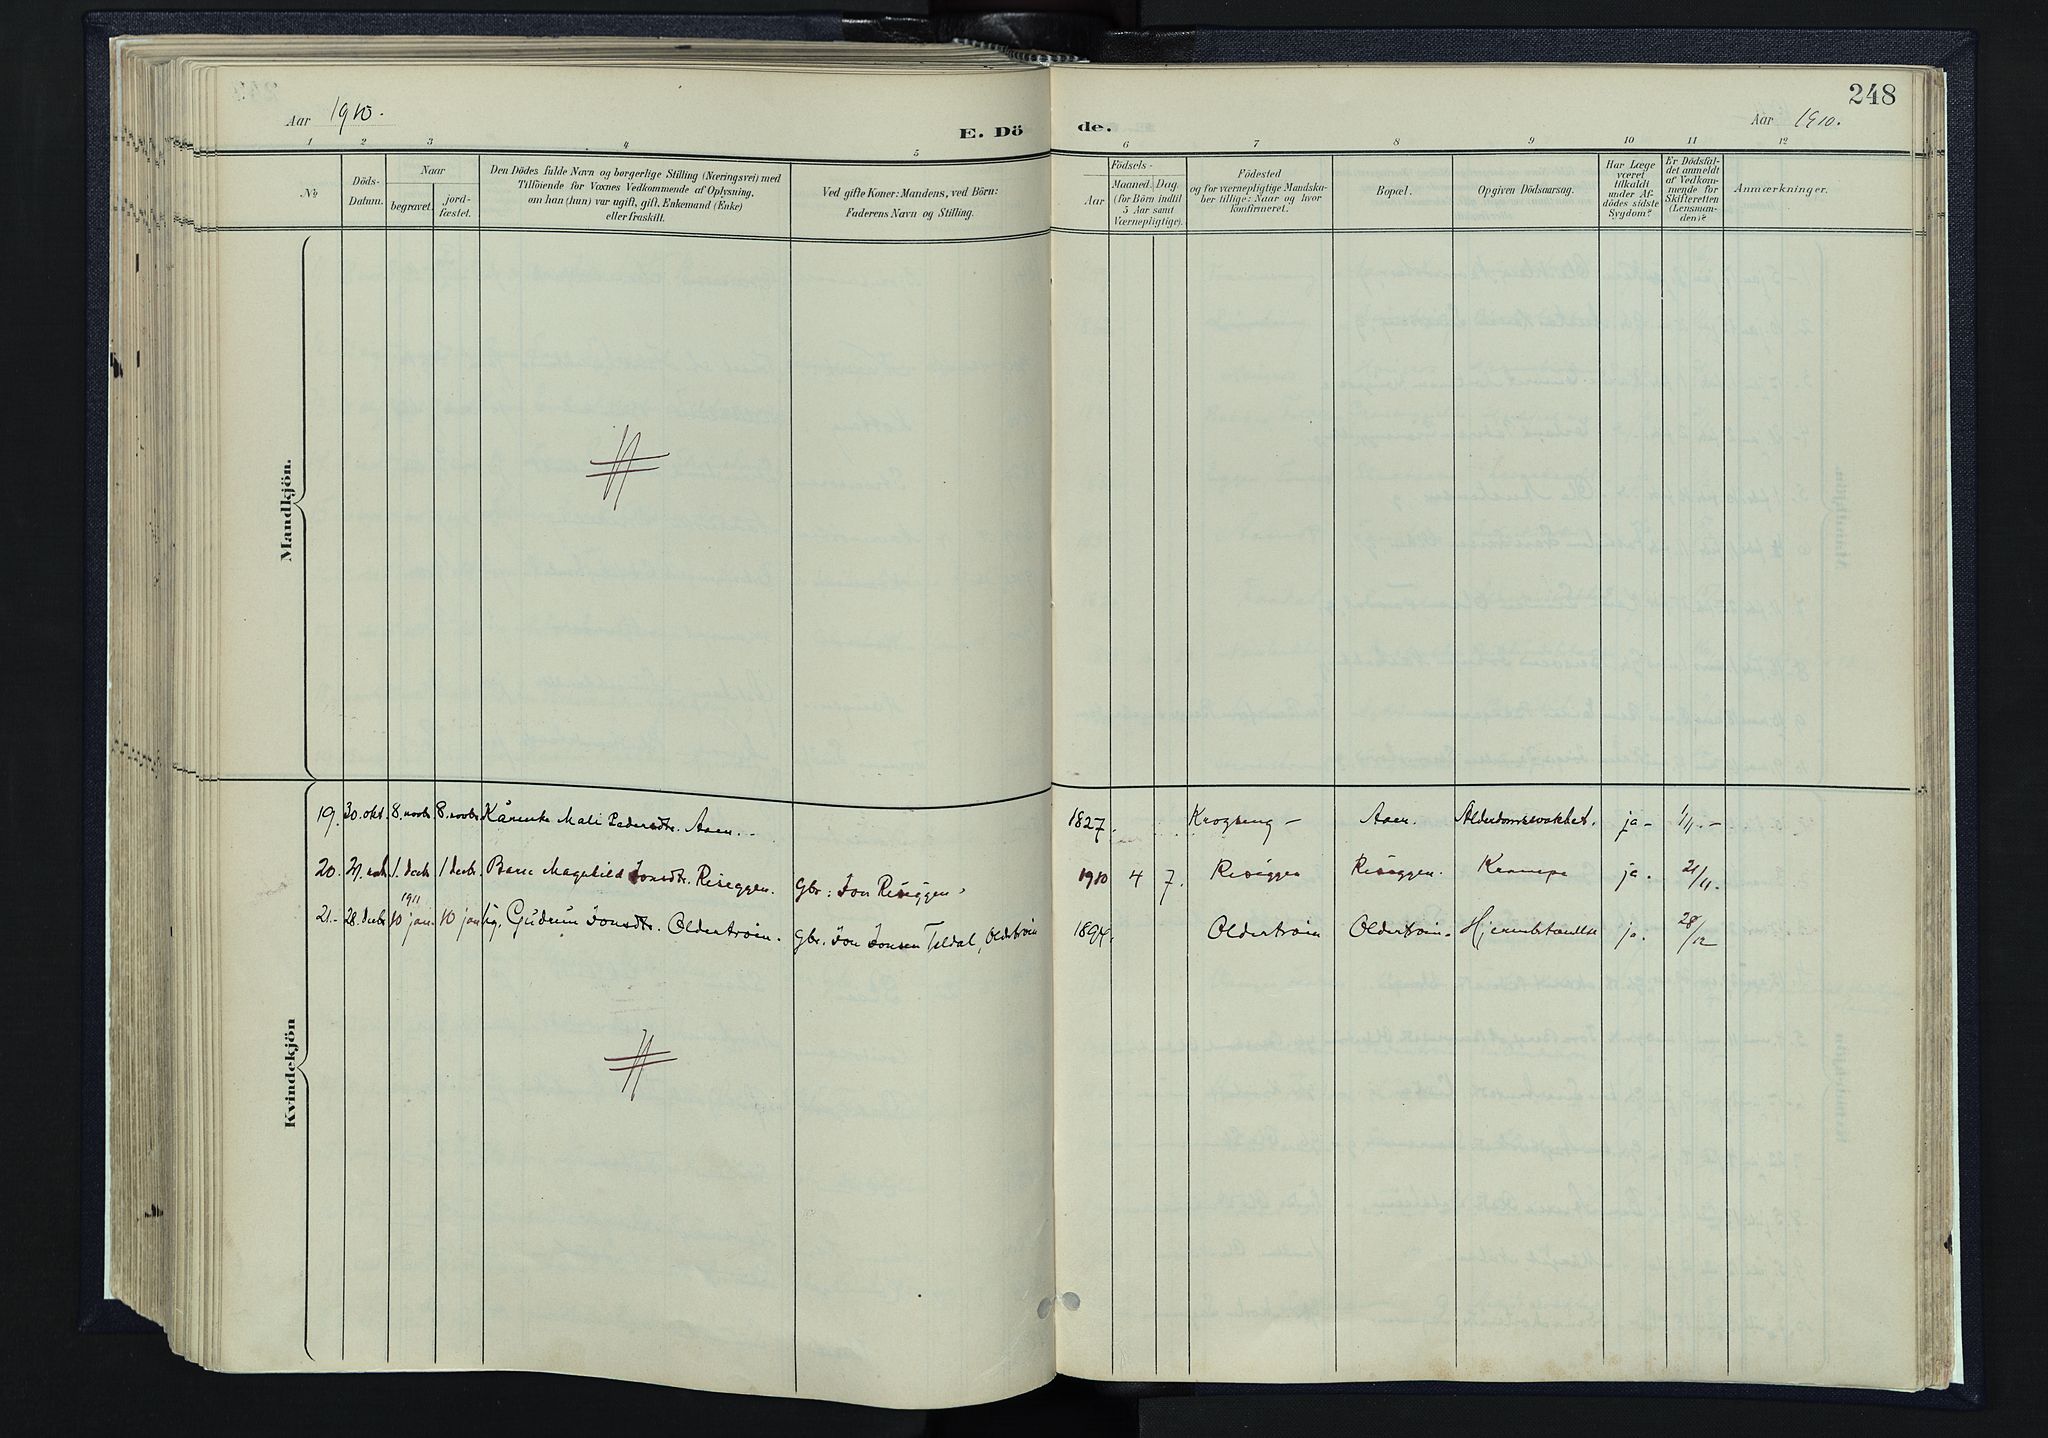 248
Aar 1910.
Aar 1910.
E. Dö de.
1 2 3 4 5 6 7 8 9 10 11 12
No
Döds-
Datum.
Naar
begravet.
jord-
fæstet.
Den Dödes fulde Navn og borgerlige Stilling (Næringsvei) med
Tilföiende for Voxnes Vedkommende af Oplysning,
om han (hun) var ugift, gift, Enkemand (Enke)
eller fraskilt.
Ved gifte Koner: Mandens, ved Börn:
Faderens Navn og Stilling.
Födsels-
Aar
Maaned.
Dag.
(for Börn indtil
5 Aar samt
Værnepligtige).
Födested
og for værnepligtige Mandska-
ber tillige: Naar og hvor
konfirmeret.
Bopæl.
Opgiven Dödsaarsag.
Har Læge
været
tilkaldt
under Af-
dödes sidste
Sygdom?
Er Dödsfal-
det anmeldt
af Vedkom-
mende for
Skifteretten
(Lensman-
den)?
Anmærkninger.
Mandkjön.
19. 30. okt. 8. novbr 8. novbr Kårenke Mali Pedersdtr. Aaen. 1827. Krogseng Aaen. Alderdomssvakhet. ja 1/11.
20. 21. 1. decb 1 decb Barn Magnhild Jonsdtr. Riseggen. Gbr: Jon Riseggen. 1910 4 7. Riseggen Riseggen. Krampe ja. 21/11.
1911
21. 28. decbr 10 jan 10 jan Gudrun Jonsdtr. Oldertrøen. Gbr. Jon Jonsen Teldal, Oldertrøen 1894. Oldertrøen Oldertrøen. ja. 28/12
Kvindekjön